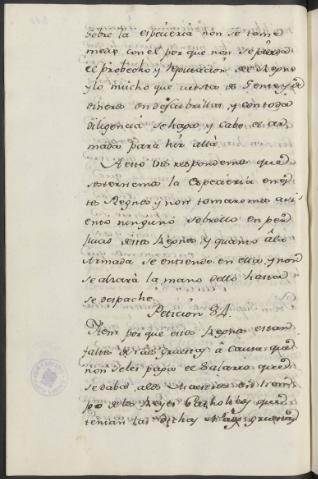 sobre la especieria non se tome
meas con el por que non se pierda
el probecho y Reputacion de el Reyno
y lo mucho que cuesta de Gente y de
dinero en descubrillas, y con toda
diligencia se haga y cabe el ar
mada para hir allá
A esto vos respondemos que
sosternemos la Especieria en es
te Reyno y non tomaremos asi
ento ninguno sobrello en per
juicio destos Reynos y quanto a la
Armada se entiende en ello y non
se alzará la mano dello hasta
se despache.
Peticion 84.
Item por que estos Reynos estan
faltos de
a causa que
non se les paga el salario que
se daba a los
en tiem
po de los Reyes Catholicos que
tenian las dichas